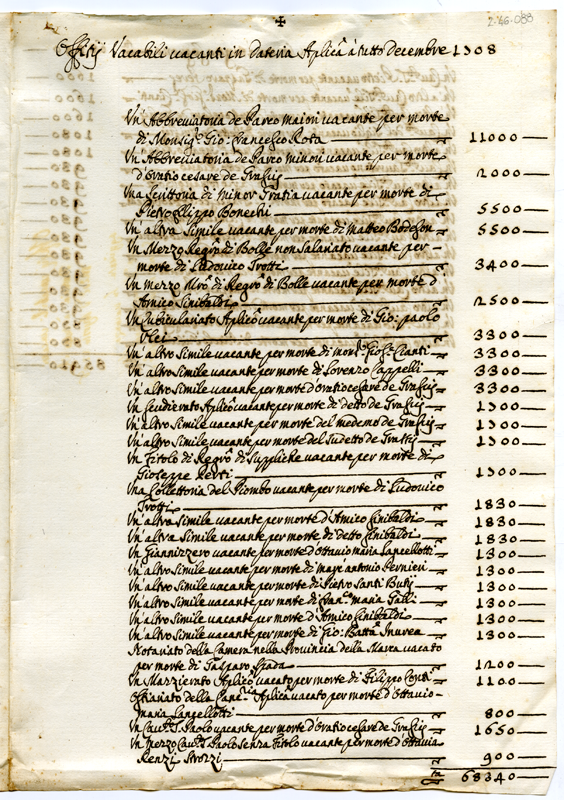 2-46-088
Offitij Vacabili vacanti in dataria Aplicâ à tutto decembre 1308
Un'Abbreviatoria de Parco maiori vacante per morte
di Monsig.r Gio: Francesco Rota 11000
Un'Abbreviatoria de Parco minori vacante per morte
d'Oratio cesare de 2000
Una scrittoria di minor Gratia vacante per morte di
Pietro filippo 5500
Un'altra simile vacante per morte di Matteo 5500
Un Mezzo Regrô di Bolle non Salariato vacante per
morte di Ludovico Trotti 3400
Un mezzo di Regrô di Bolle vacante per morte d'
Amico Sinibaldi 2500
Un Cubiculariato Aplicô vacante per morte di Gio: paolo
3300
Un'altro simile vacante per morte di Gios: Cianti 3300
Un'altro simile vacante per morte di Lorenzo Cappelli 3300
Un'altro simile vacante per morte d'Oratio cesare de 3300
Un Scudierato Aplicô vacante per morte di detto de 1300
Un'altro simile vacante per morte del medemo de 1300
Un'altro simile vacante per morte del sudetto de 1300
Un Titolo di Regrô di suppliche vacante per morte di
Gioseppe 1300
Una Collettoria del Piombo vacante per morte di Ludovico
Trotti 1830
Un'altra simile vacante per morte d'Amico Sinibaldi 1830
Un'altra simile vacante per morte di detto Sinibaldi 1830
Un Giannizzero vacante per morte d'Ottavio maria Lancellotti 1300
Un'altro simile vacante per morte di marc'antonio 1300
Un'altro simile vacante per morte di Pietro Santi 1300
Un'altro simile vacante per morte di maria Galli 1300
Un'altro simile vacante per morte d'Amico Sinibaldi 1300
Un'altro simile vacante per morte di Gio: Batta 1300
Notariato della Camera nella Provincia della Marca vacato
per morte di Gasparo Spada 1200
Un Mazzierato Aplicô vacato per morte di Filippo Conti 1100
Ostiariato della Aplicâ vacato per morte d'Ottavio
maria Lancellotti 800
Un S. Paolo vacante per morte d'Oratio cesare de 1650
Un mezzo S. Paolo senza Titolo vacante per morte d'Ottavia
Renzi Strozzi 900
68340